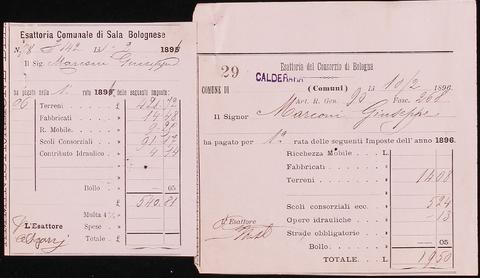 Esattoria Comunale di Sala Bolognese
N. 189
Il Sig. Marconi Giuseppe
ha pagato della 1a rata 189 le seguenti imposte:
Terreni £
Fabbricati £ 14
R. Mobile £
Scoli Consorziali £ 91 17
Contributo Idraulico £
Bollo £ 05
£ 540.81
Multa 4% £
L'Esattore Spese £
Totale £
Esattoria del Consorzio di Bologna
29
CALDERARA
COMUNE DI (Comuni) li 10/2 1896
Art. R. Gen. 90 Fasc. 268
Il Signor Marconi Giuseppe
ha pagato per 1a rata delle seguenti Imposte dell'anno 1896.
Ricchezza Mobile L.
Fabbricati
Terreni 1408
Scoli consorziali ecc. 524
Opere idrauliche 13
L'Esattore
Strade obbligatorie
Bollo 05
TOTALE L. 1950